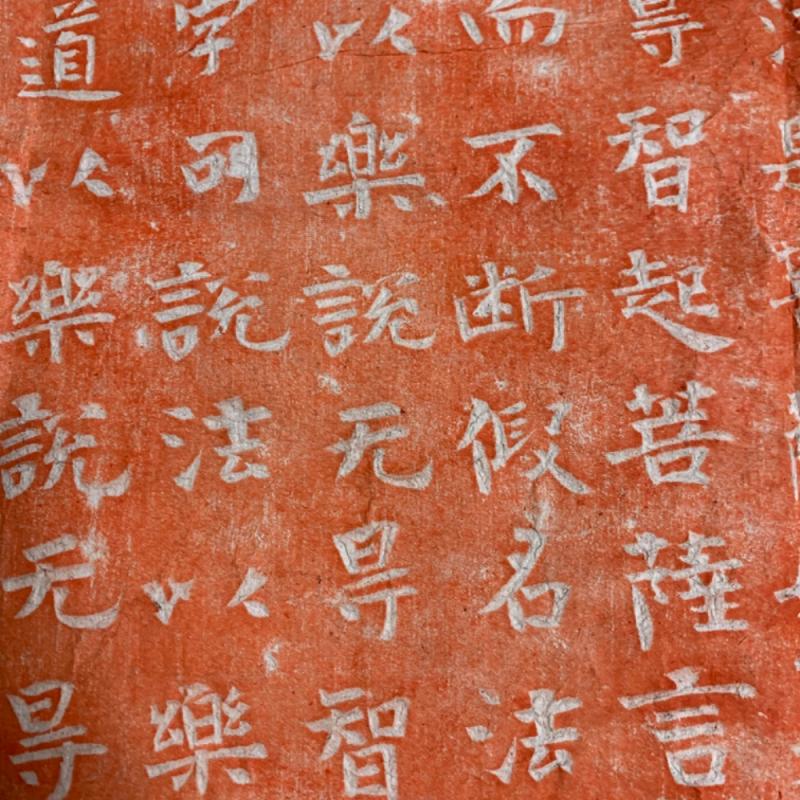 㝵智起菩薩言
而不断假名法
以樂說无㝵智
字可說法以樂
道以樂說无㝵